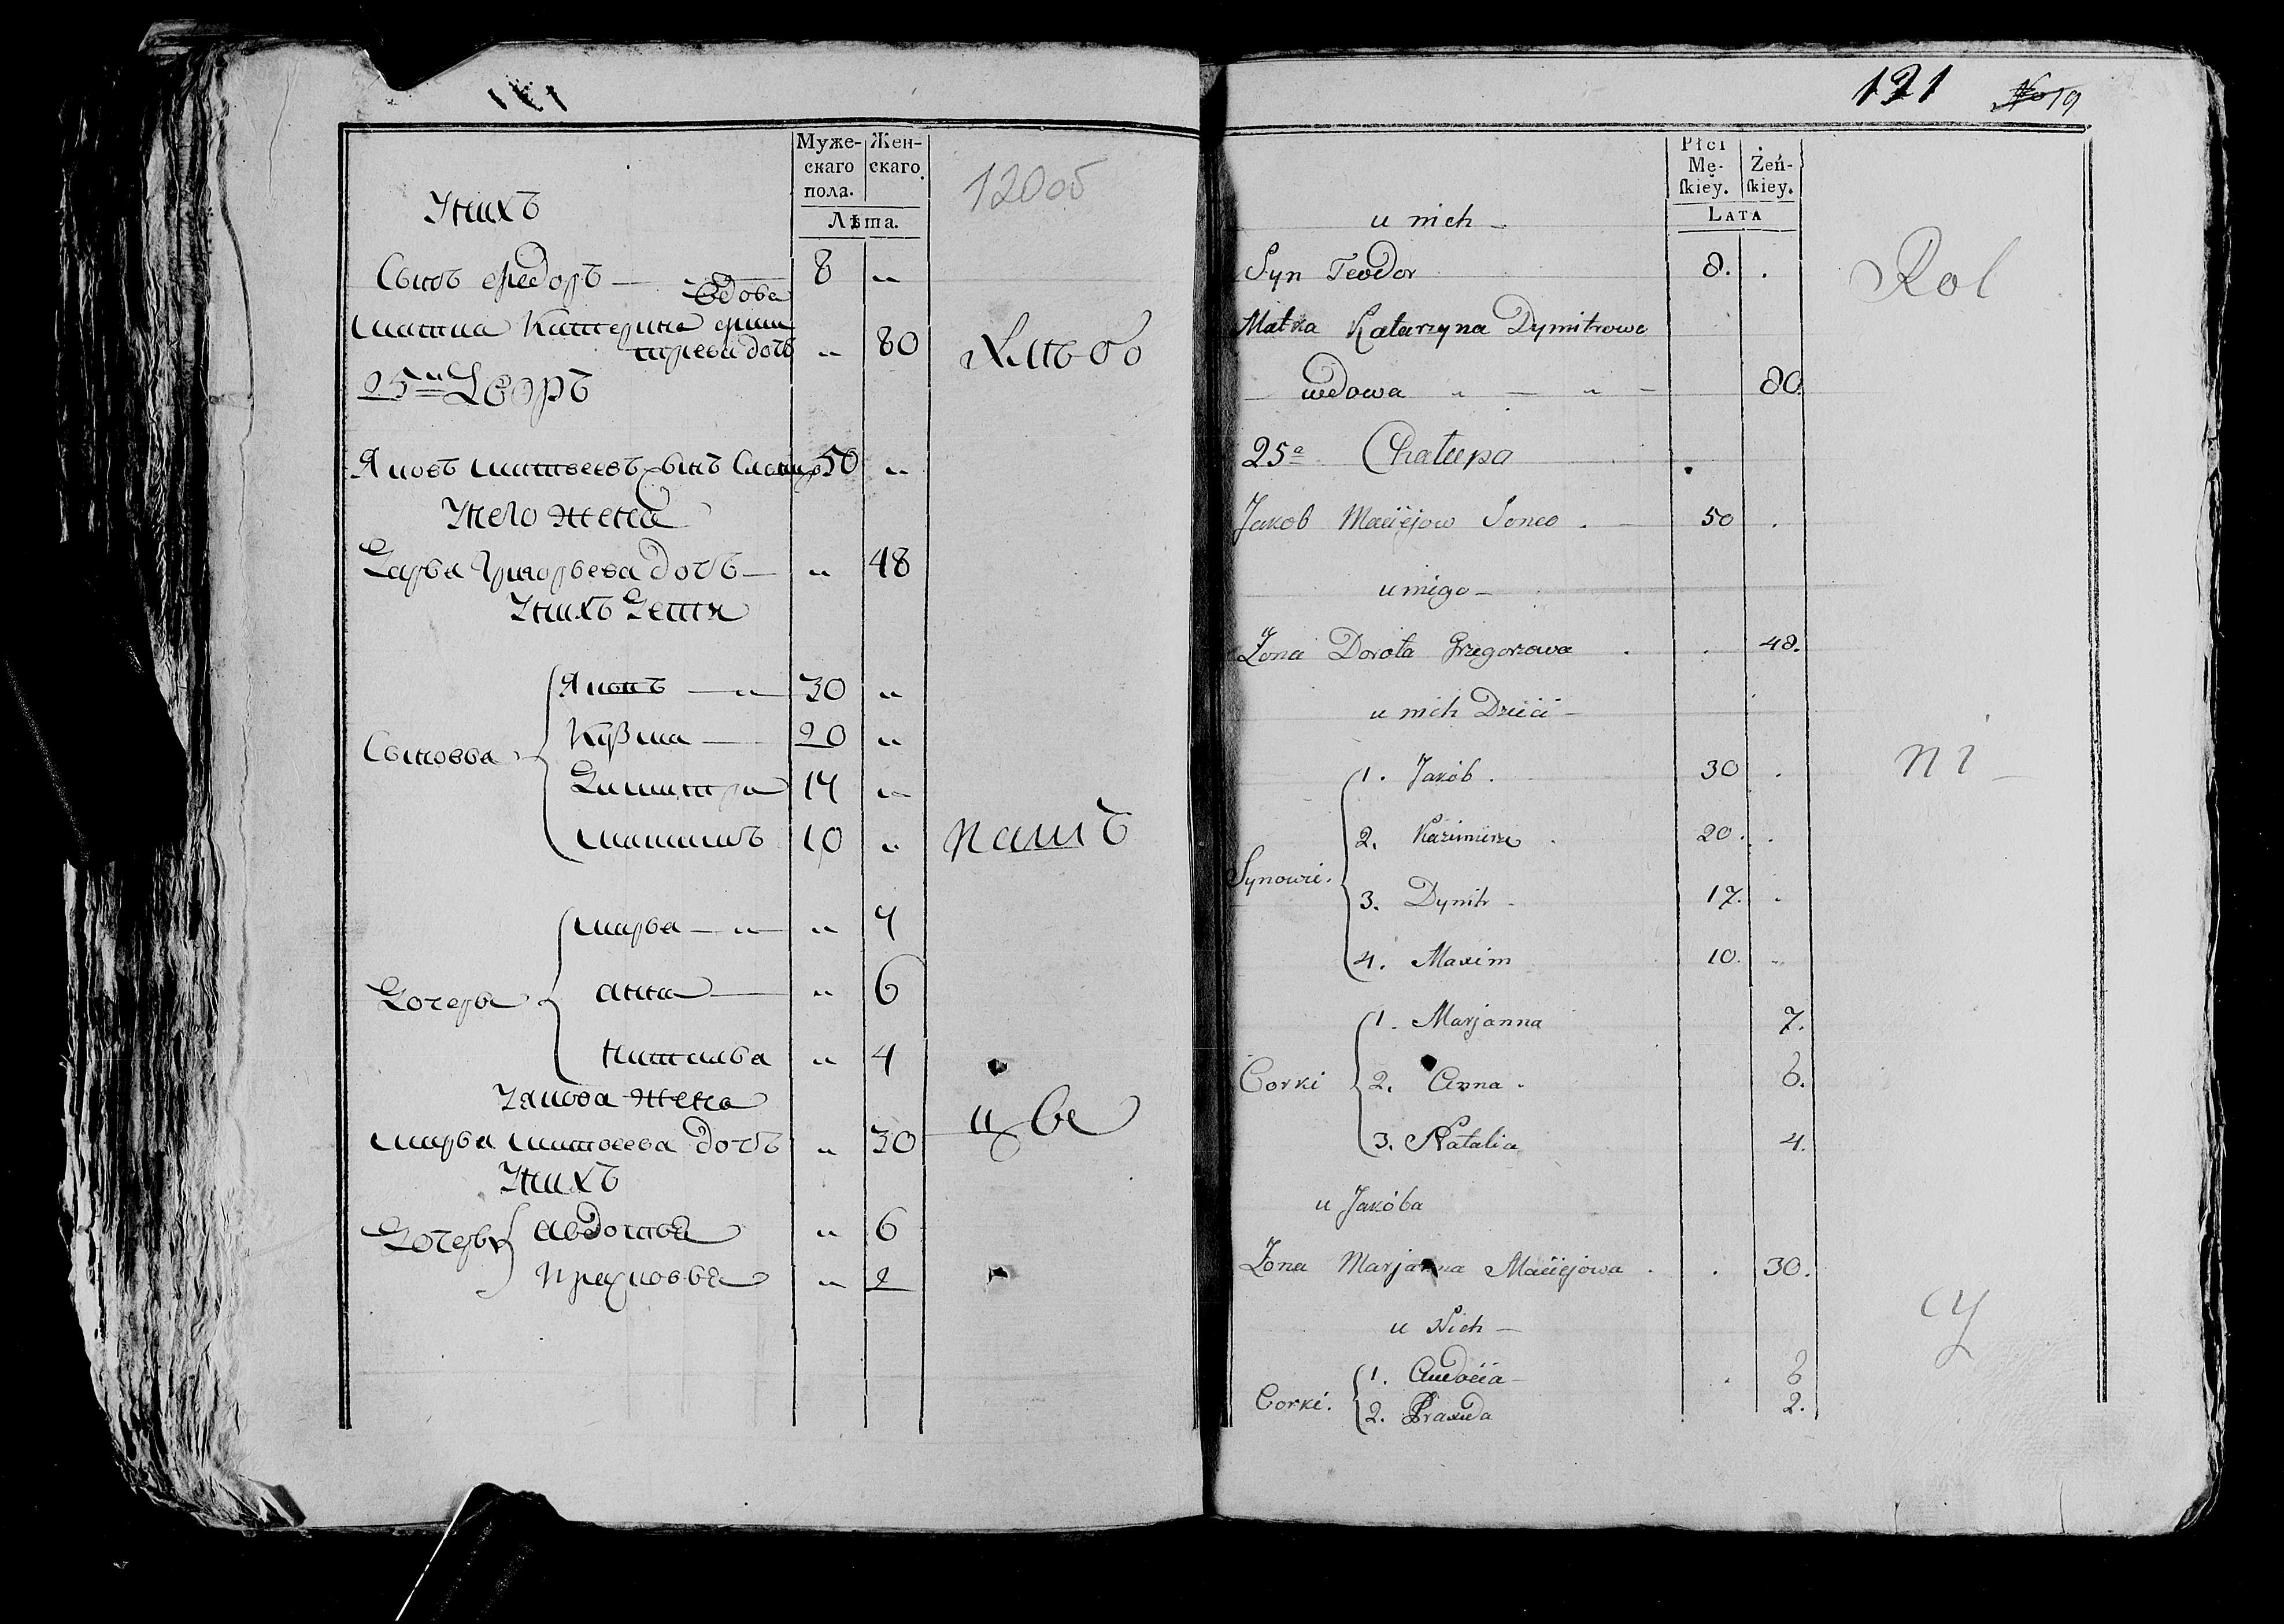 Муже-
скаго
пола.
Жен-
скаго.
Лѣта.
120об
Унихъ
Сынъ Федоръ — 8 „
вдова
матка Катерина Дми
трева дочь „ 80
Хлѣбо
25й Дворъ
Яковъ Матвеевъ сынъ 50 „
Унего жена
Дарья Григорьева дочь — „ 48
Унихъ Дети
Сыновья
Яковъ — „ — 30 „
Кузма — 20 „
Димитри 17 „
Максимъ 10 „
пашъ
Дочери
Марья — „ — „ 7
Анна — „ 6
Наталья „ 4
Уякова жена
Марья Матвеева дочь „ 30
цы
Унихъ
Дочери
Авдотья „ 6
Прасковья „ 2
121
No 19
Płci
Mę-
skiey.
Żeń-
skiey.
LATA
u nich —
Syn Teodor 8. .
Rol
Matka Katarzyna Dymitrowa
wdowa „ — „ — 80.
25a Chałupa
Jakob Maciejow Sonco . — 50 .
u niego —
Żona Dorota Grzegorzowa . . 48.
u nich Dzieci —
Synowie.
1. Jakób . 30 .
ni —
2. Kazimierz . 20 . .
3. Dymitr . 17. .
4. Maxim 10. „
Corki
1. Marjanna 7.
2. Anna . 6.
3. Natalia 4.
u Jakóba
Żona Marjanna Maciejowa . . 30.
cy
u Nich —
Corki.
1. Audocia — . 6
2. Praxeda 2.